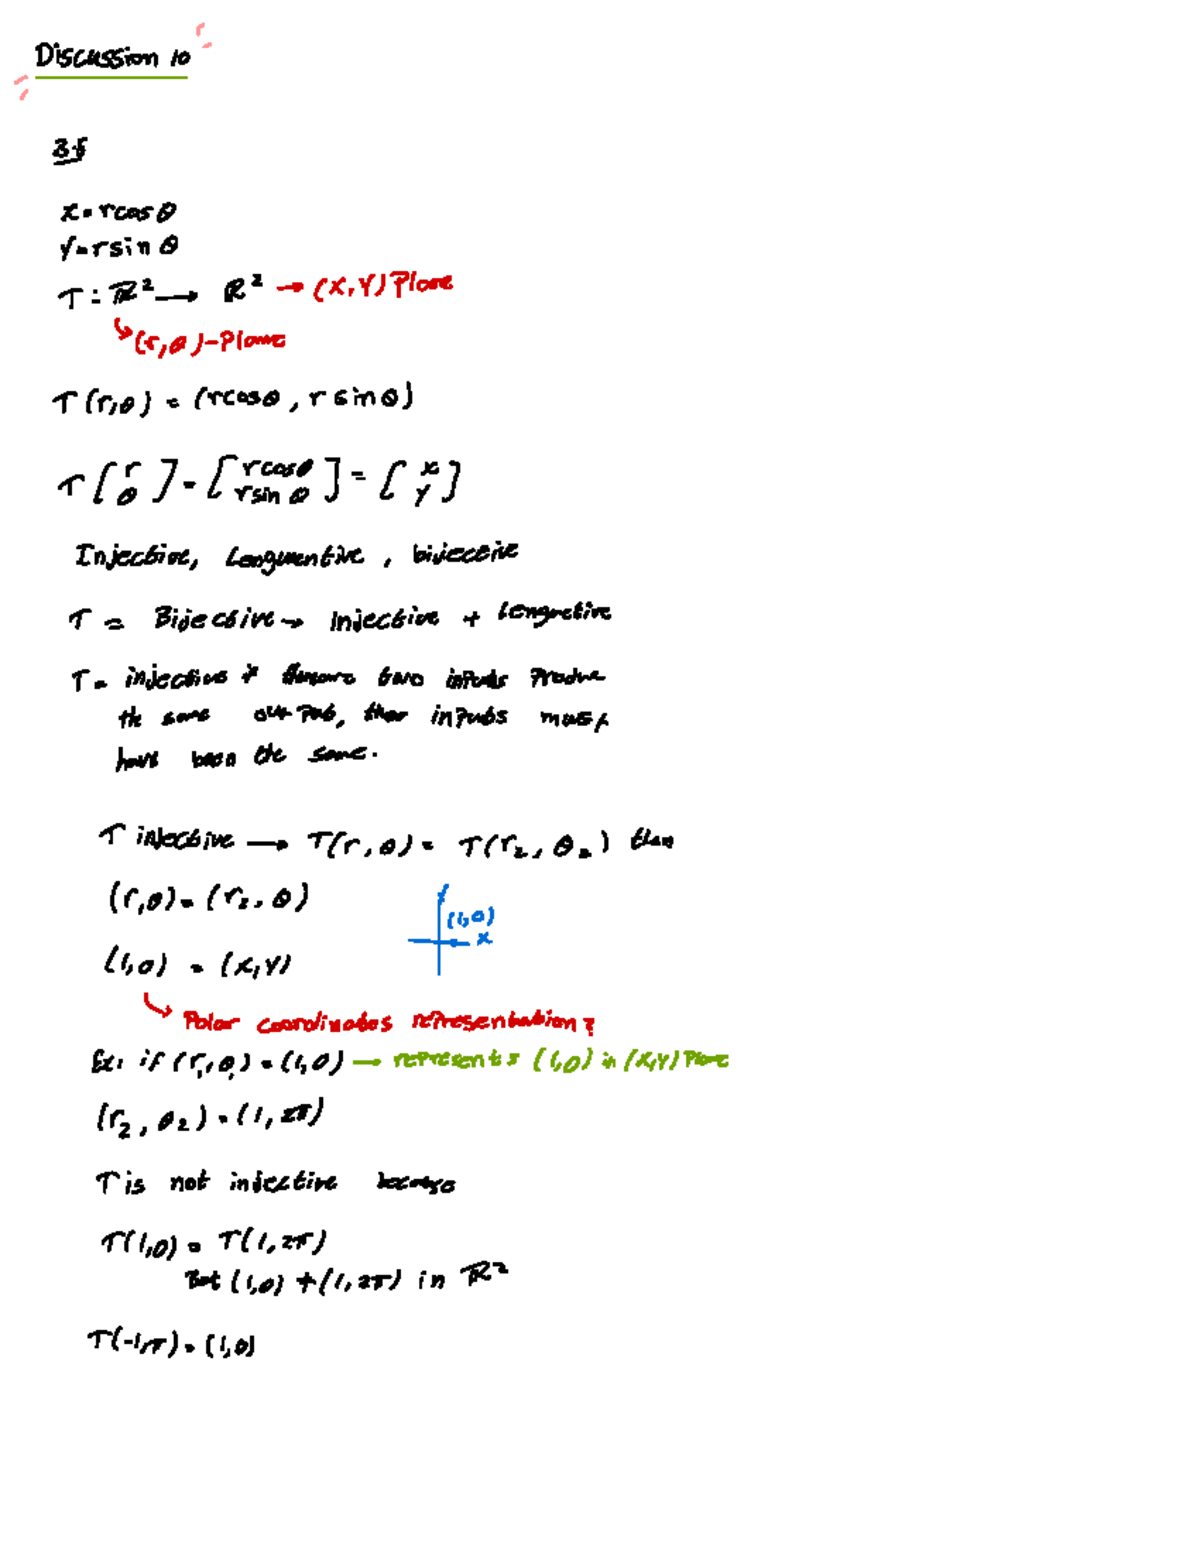 Discussion 10
3.5
x = r cos θ
y = r sin θ
T : ℝ² → ℝ² → (x, y) Plane
↳ (r, θ) - Plane
T(r, θ) = (r cos θ, r sin θ)
T [r θ] = [r cos θ r sin θ] = [x y]
Injective, , bijective
T = Bijective → Injective +
T = injective if two inputs Produce
the same output, then inputs must
have been the same.
T injective → T(r, θ) = T(r₂, θ₂) then
(r, θ) = (r₂, θ)
y
(1, 0)
x
(1, 0) = (x, y)
↳ Polar coordinates representation?
Ex: if (r₁, θ₁) = (1, 0) → represents (1, 0) in (x, y) Plane
(r₂, θ₂) = (1, 2π)
T is not injective because
T(1, 0) = T(1, 2π)
But (1, 0) ≠ (1, 2π) in ℝ²
T(-1, π) = (1, 0)